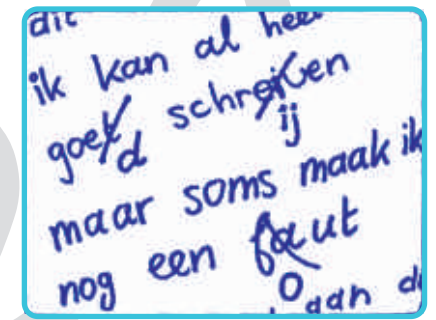 dit
ik kan al heel
goet schreiven
d ij
maar soms maak ik
nog een faut
o
aan